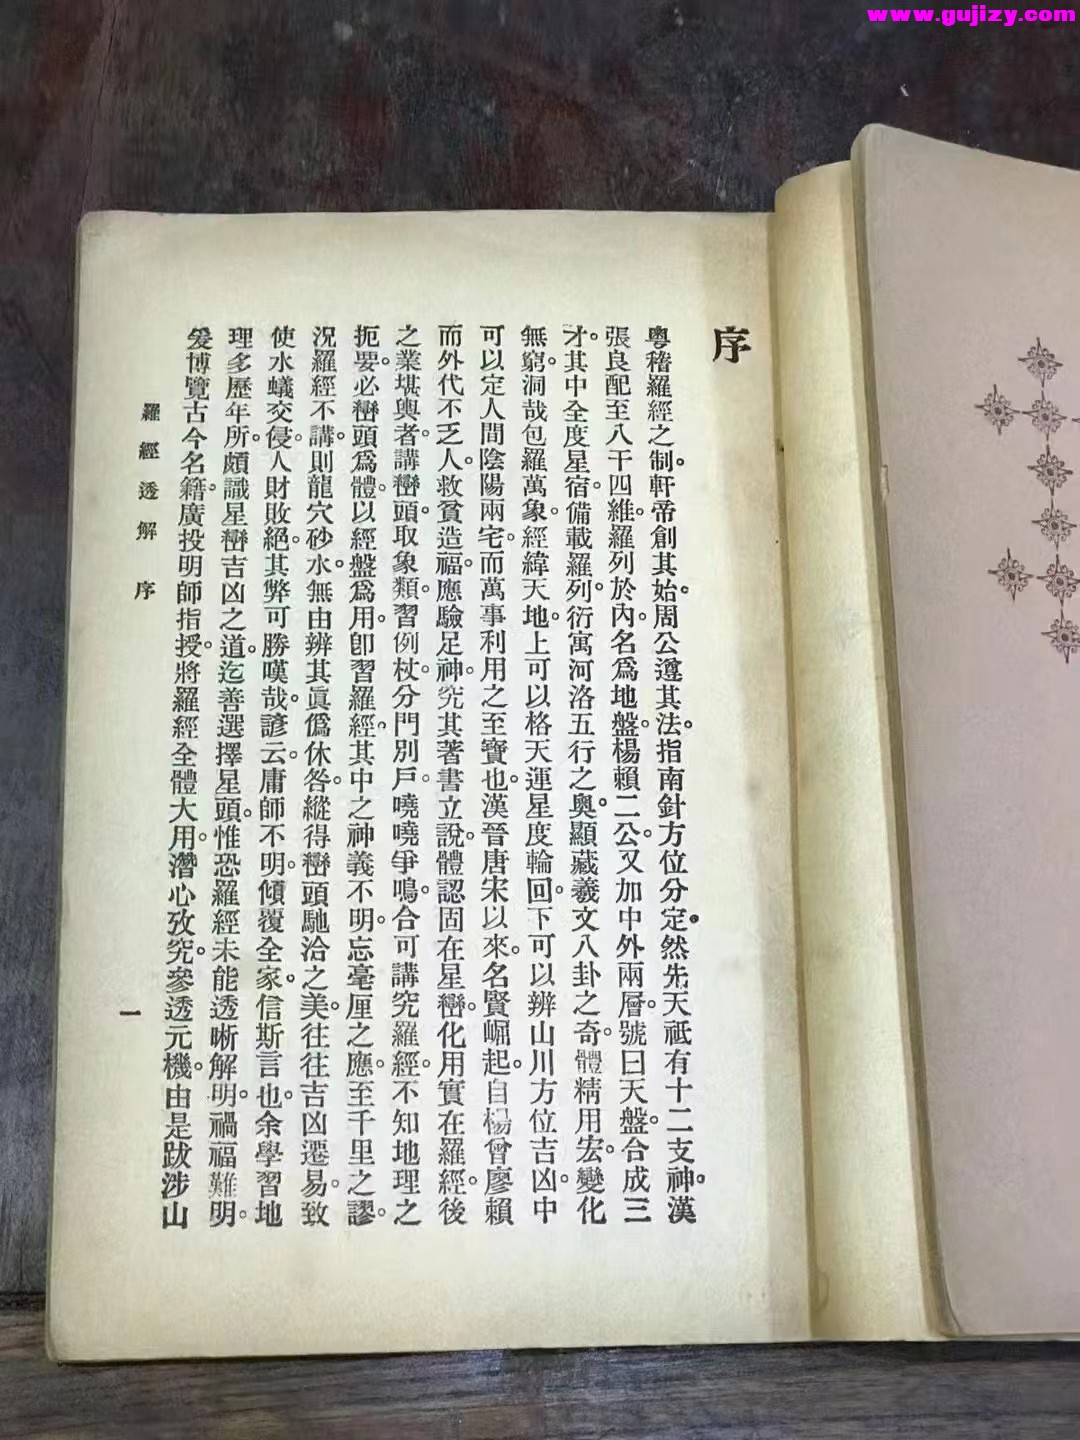 www.gujizy.com
序
粵稽羅經之制。軒帝創其始。周公遵其法。指南針方位分定。然先天祇有十二支神。漢
張良配至八干四維。羅列於內。名爲地盤。楊賴二公。又加中外兩層。號曰天盤。合成三
才。其中全度星宿。備載羅列。衍寓河洛五行之奧。顯藏羲文八卦之奇。體精用宏。變化
無窮。洞哉包羅萬象。經緯天地。上可以格天運星度輪回。下可以辨山川方位吉凶。中
可以定人間陰陽兩宅。而萬事利用之至寶也。漢晉唐宋以來。名賢崛起。自楊曾廖賴
而外。代不乏人。救貧造福。應驗足神。究其著書立說。體認固在星巒。化用實在羅經。後
之業堪輿者。講巒頭取象類。習例杖分門別戶。嘵嘵爭鳴。合可講究羅經。不知地理之
扼要。必巒頭爲體。以經盤爲用。卽習羅經。其中之神義不明。忘毫厘之應。至千里之謬。
況羅經不講。則龍穴砂水。無由辨其眞僞休咎。縱得巒頭馳洽之美。往往吉凶遷易。致
使水蟻交侵。人財敗絕。其弊可勝嘆哉。諺云。庸師不明。傾覆全家。信斯言也。余學習地
理多歷年所。頗識星巒吉凶之道。迄善選擇星頭。惟恐羅經未能透晰解明。禍福難明。
爰博覽古今名籍。廣投明師指授。將羅經全體大用。潛心攷究。參透元機。由是跋涉山
羅經透解 序
一